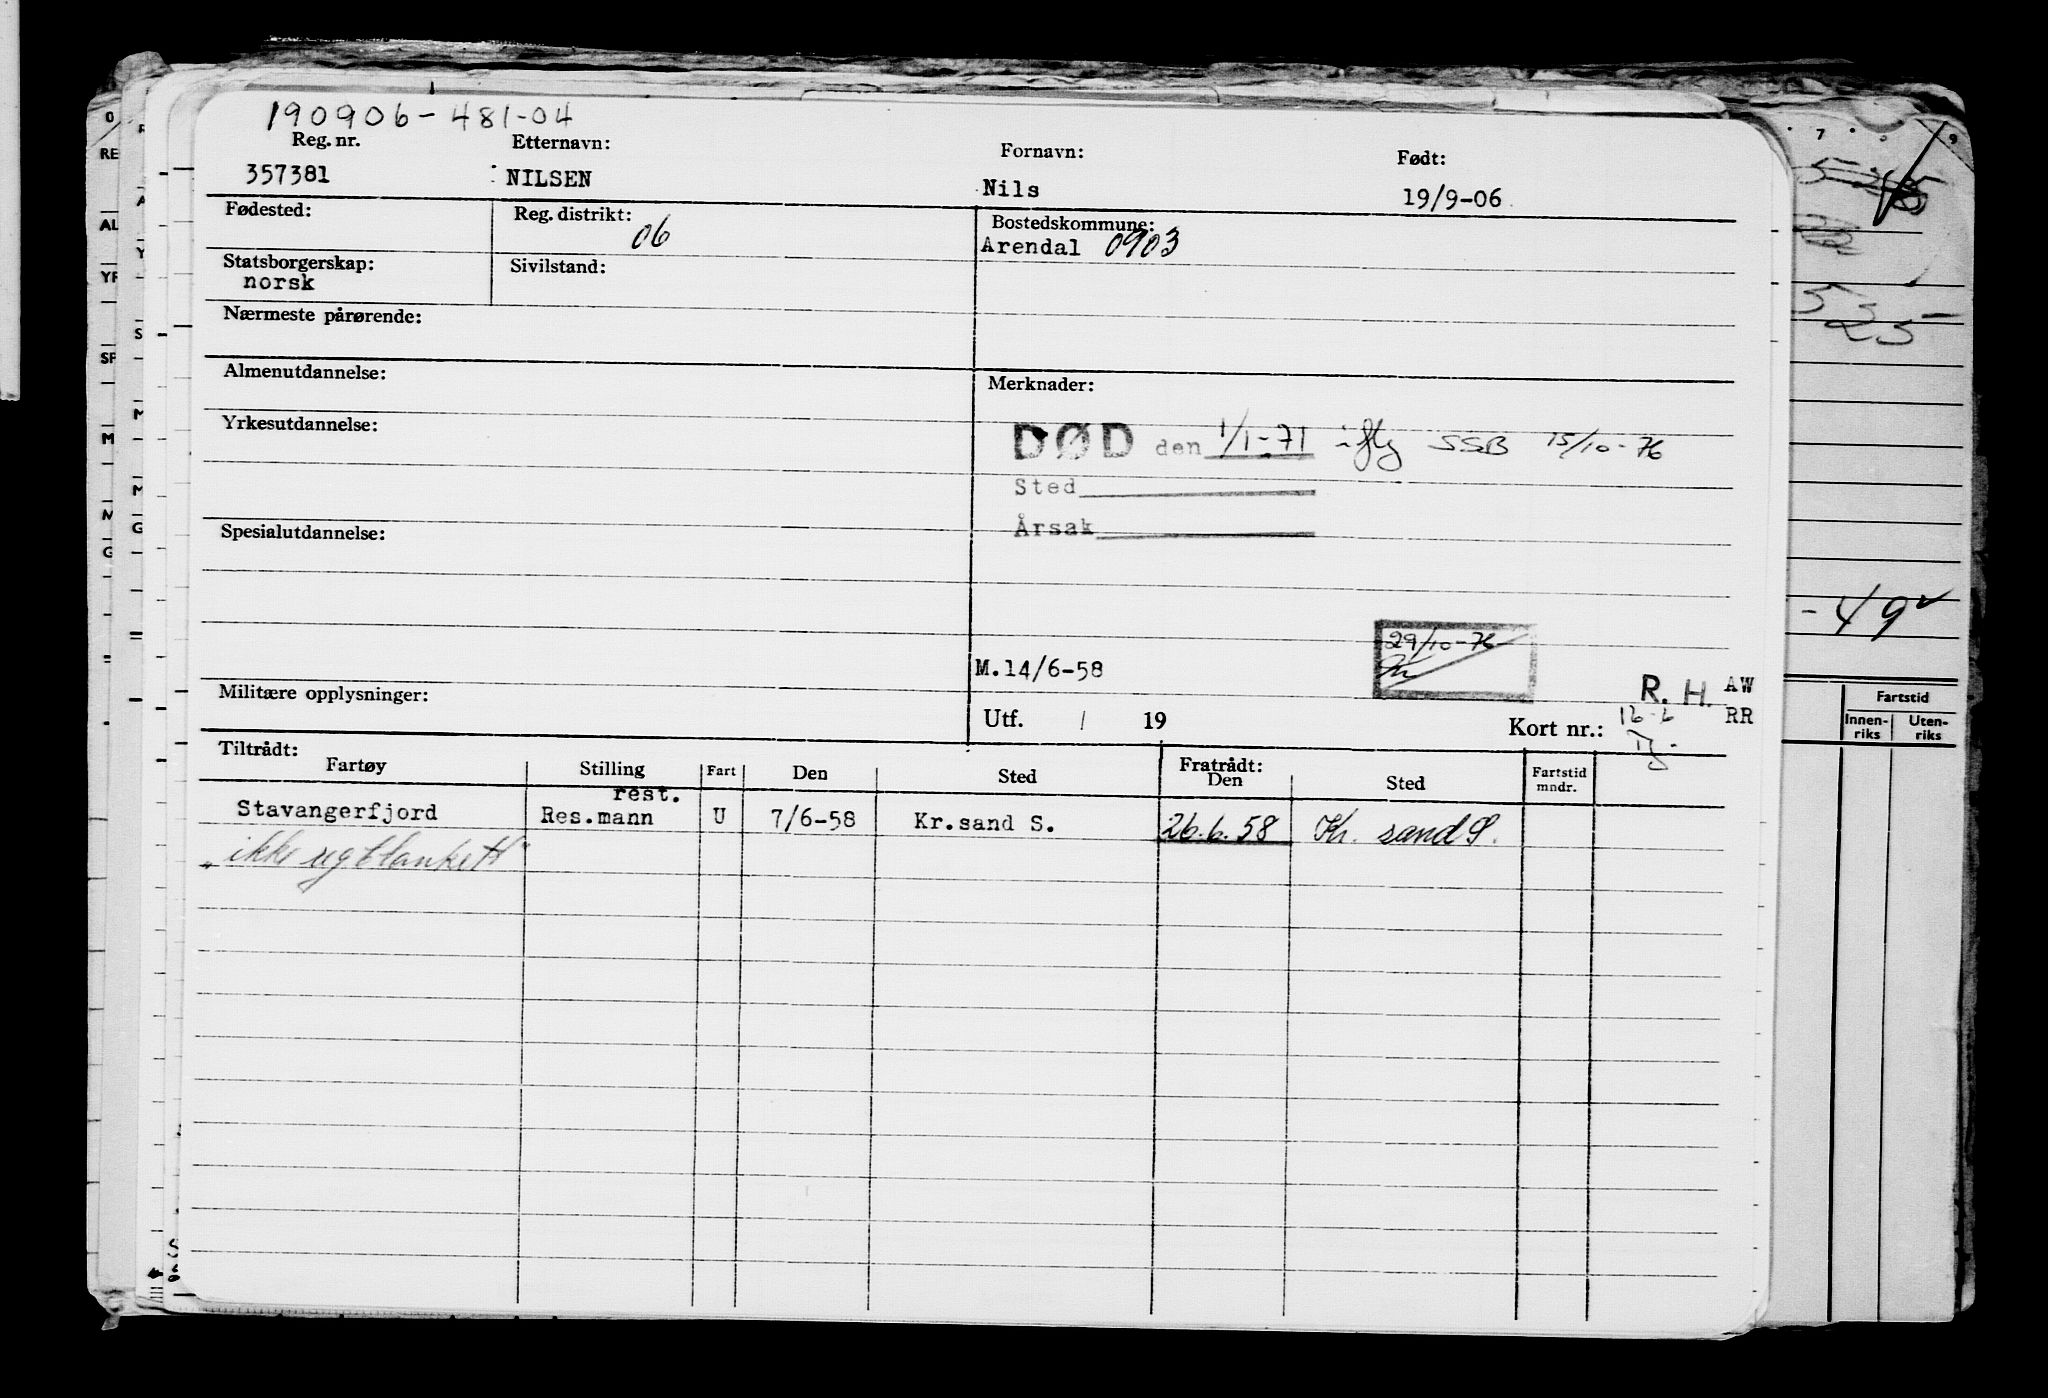 190906-481-04
Reg. nr. Etternavn: Fornavn: Født:
357381 NILSEN Nils 19/9-06
Fødested: Reg. distrikt: 06 Bostedskommune:
Arendal 0903
Statsborgerskap: Sivilstand:
norsk
Nærmeste pårørende:
Almenutdannelse: Merknader:
Yrkesutdannelse:
DØD den 1/1-71 iflg SSB 15/10-76
Sted
Årsak
Spesialutdannelse:
29/10-76
M.14/6-58
Militære opplysninger:
R. H. AW
Utf. / 19 Kort nr.: 16-6 RR
Tiltrådt: Fratrådt:
Fartøy Stilling Fart Den Sted Den Sted Fartstid mndr.
rest.
Stavangerfjord Res.mann U 7/6-58 Kr.sand S. 26.6.58 Kr. sand S.
"ikke reg blankett"
7 9
25
- 49
Fartstid
Innen-riks Uten-riks